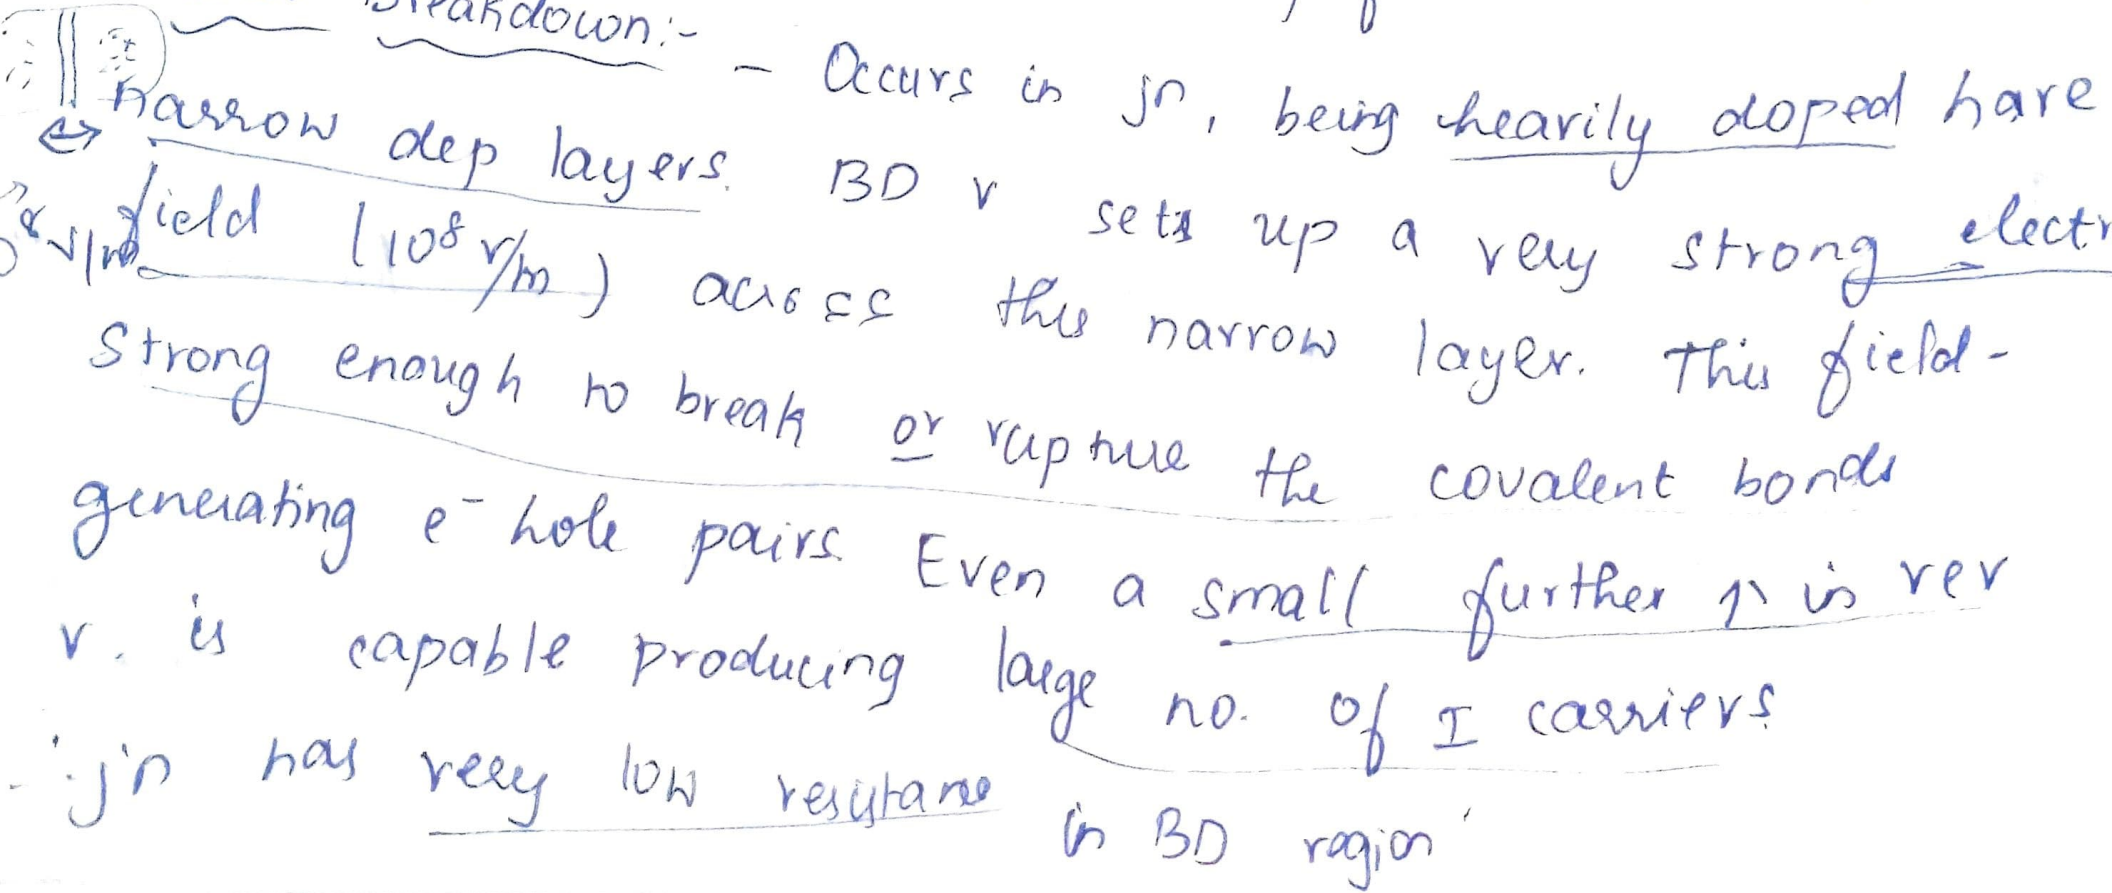 Breakdown:-
- Occurs in jn, being heavily doped have
narrow dep layers. BD v sets up a very strong electr
field (10⁸ v/m) across this narrow layer. This field -
strong enough to break or rupture the covalent bonds
generating e⁻ hole pairs. Even a small further ↑ in rev
v. is capable producing large no. of I carriers.
∴ jn has very low resistance in BD region